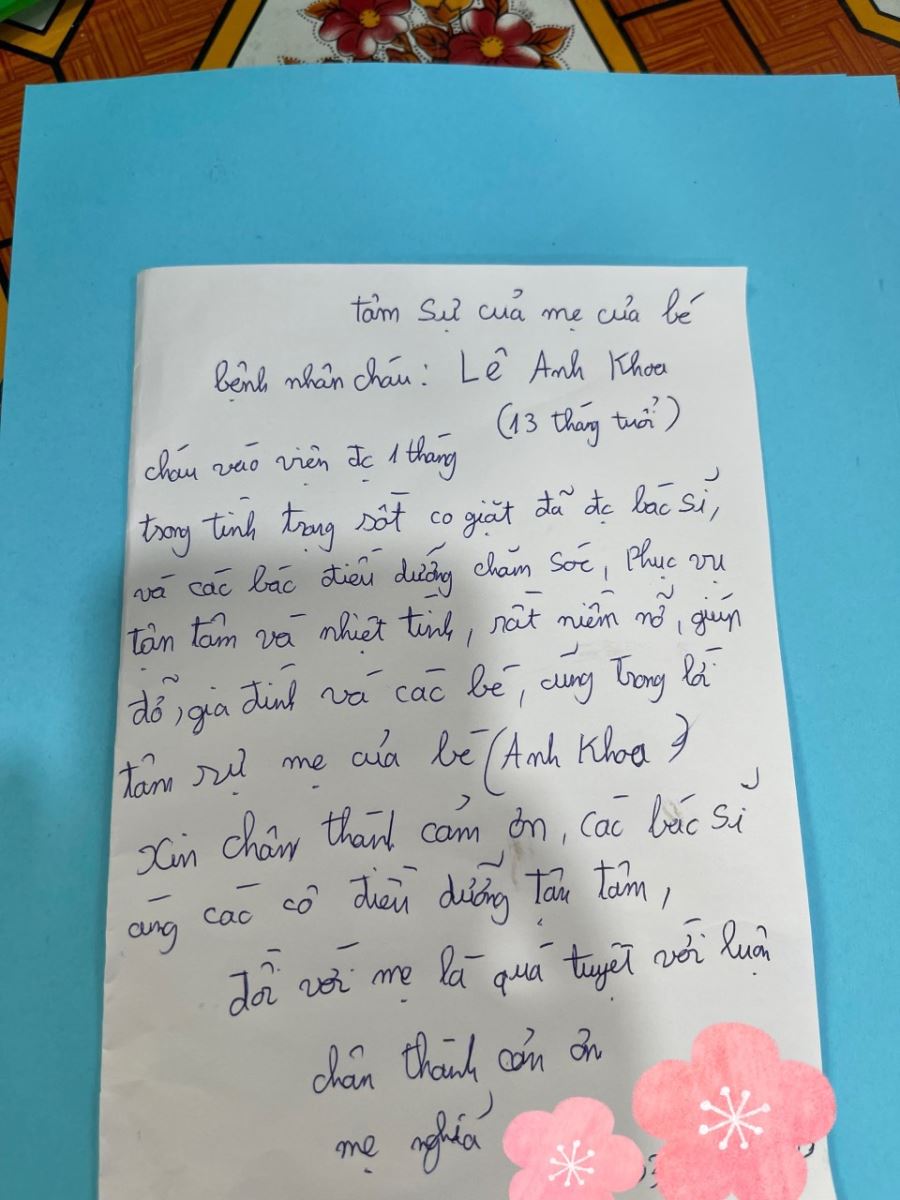 tâm sự của mẹ của bé
bệnh nhân cháu: Lê Anh Khoa
(13 tháng tuổi)
cháu vào viện đc 1 tháng
trong tình trạng sốt co giật đã đc bác sĩ,
và các bác điều dưỡng chăm sóc, phục vụ
tận tâm và nhiệt tình, rất niềm nở, giúp
đỡ, gia đình và các bé, cũng trong là
tâm sự mẹ của bé (Anh Khoa)
xin chân thành cảm ơn, các bác sĩ
cùng các cô điều dưỡng tận tâm,
đối với mẹ là quá tuyệt vời luôn
chân thành cảm ơn
mẹ nghĩa